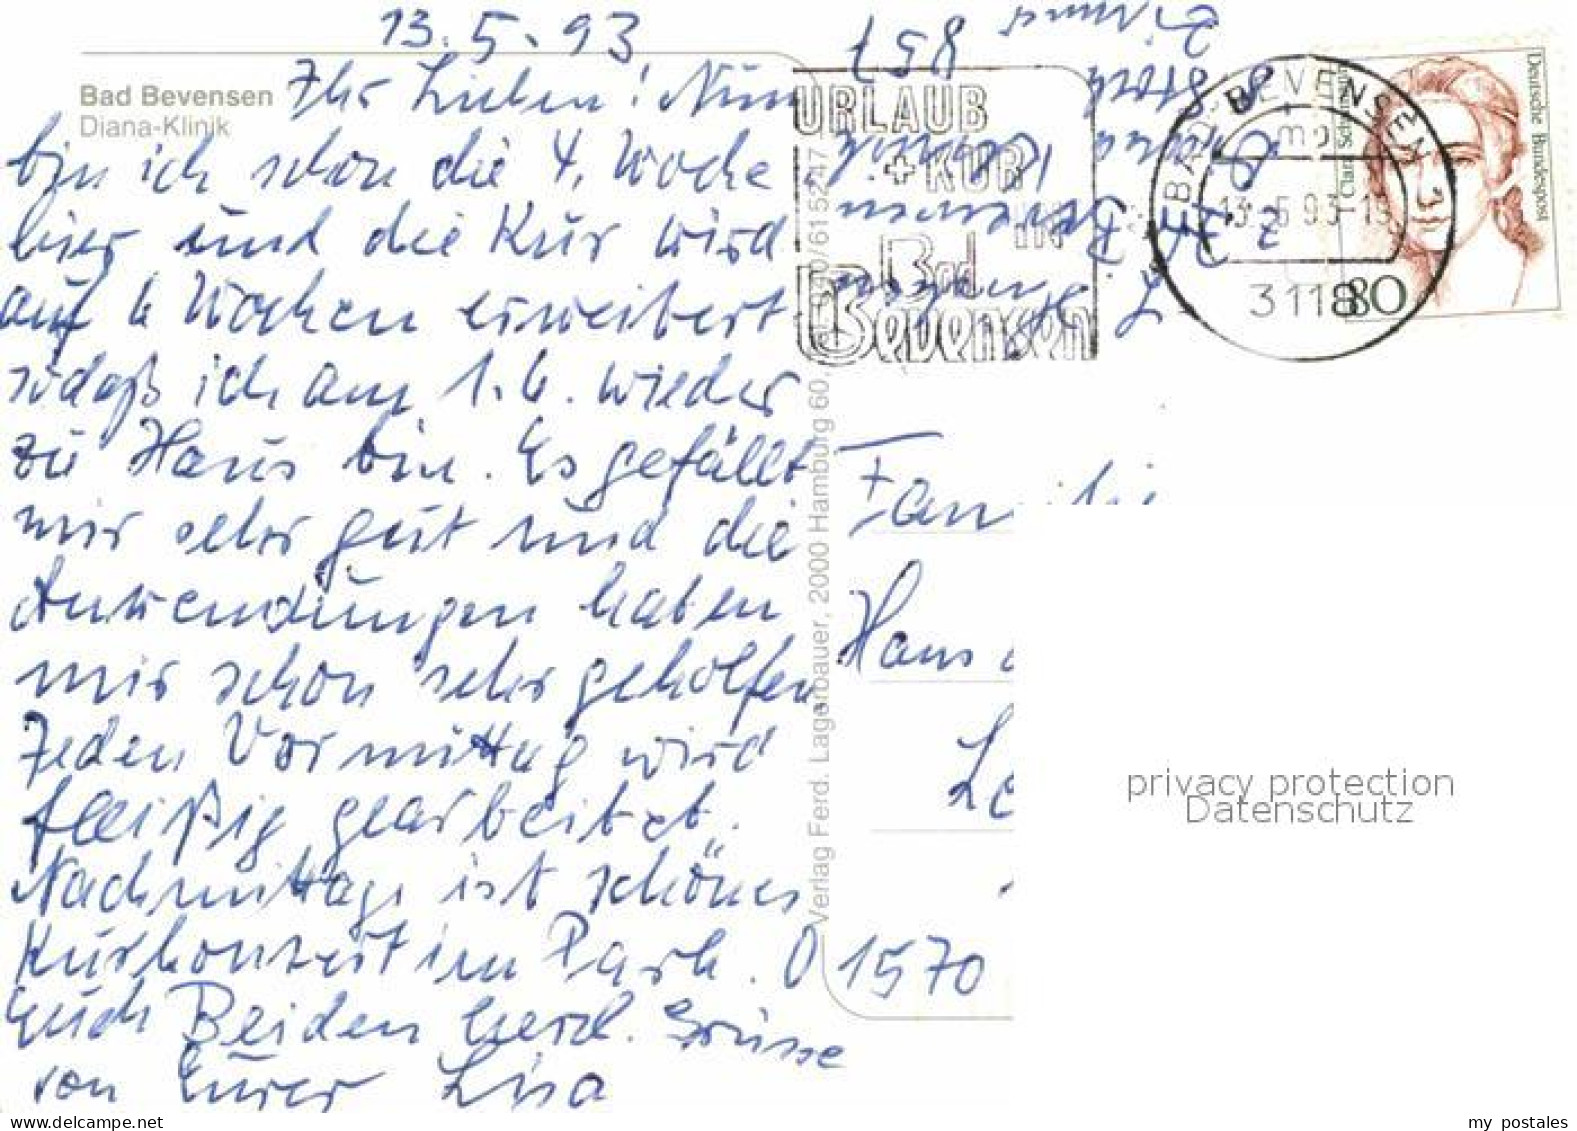 13.5.93
Bad Bevensen
Diana-Klinik
Ihr Lieben! Nun
bin ich schon die 4. Woche
hier und die Kur wird
auf 6 Wochen erweitert
sodaß ich am 1.6. wieder
zu Haus bin. Es gefällt
mir sehr gut und die
Anwendungen haben
mir schon sehr geholfen
Jeden Vormittag wird
fleißig gearbeitet.
Nachmittags ist schönes
Kurkonzert im Park.
Euch Beiden herzl. Grüsse
von Eurer Lisa
Zimmer 857
8 Stock
Diana Klinik
z. Z. Bevensen
URLAUB
+ KUR
IN
Bad
Bevensen
BAD BEVENSEN 1
mb
13.-5.93-19
3118
Deutsche Bundespost
Clara Schumann
80
Verlag Ferd. Lagerbauer, 2000 Hamburg 60, 040/615247
Familie
Hans
O 1570
privacy protection
Datenschutz
www.delcampe.net
my_postales